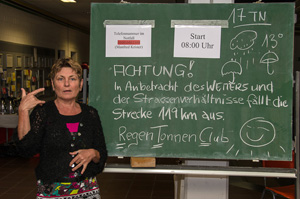 17 TN
Start
08:00 Uhr
13°
ACHTUNG!
In Anbetracht des Wetters und
der Strassenverhältnisse fällt die
Strecke 119 km aus.
Regen Tonnen Club